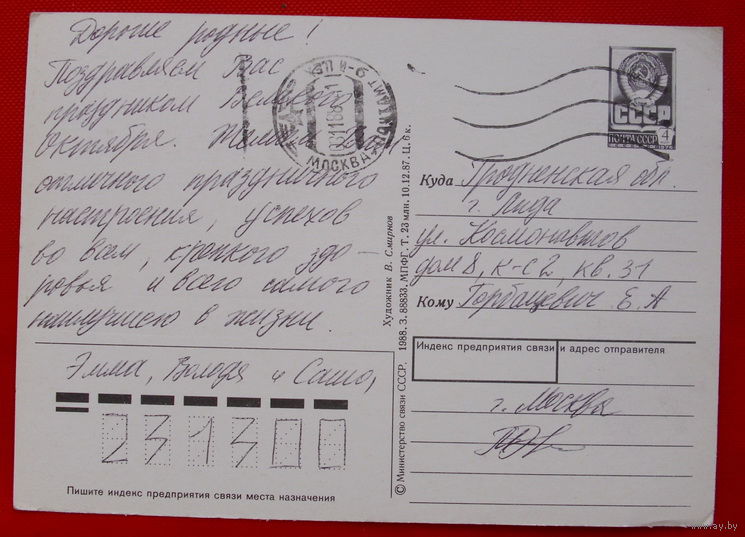 Дорогие родные!
Поздравляем Вас
праздником Великого
Октября. Желаем
отличного праздничного
настроения, успехов
во всем, крепкого здо-
ровья и всего самого
наилучшего в жизни.
Эмма, Володя и Саша,
231300
Пишите индекс предприятия связи места назначения
МОСКВА
СССР
ПОЧТА СССР
4
Куда Гродненская обл.
г. Лида
ул. Космонавтов
дом 8, к-с 2, кв. 31
Кому Горбацевич Е. А
Индекс предприятия связи и адрес отправителя
г. Москва
Художник В. Смирнов
© Министерство связи СССР, 1988. З. 88833. МПФГ. Т. 23 млн. 10.12.87. Ц. 6 к.
www.ay.by